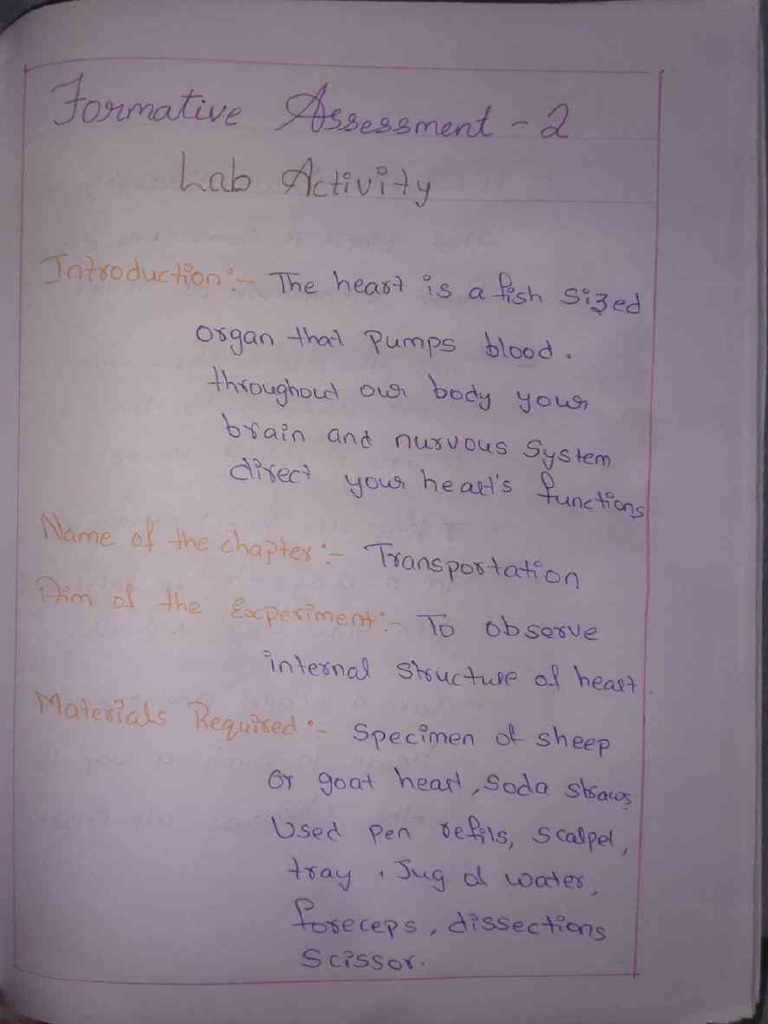 Formative Assessment - 2
Lab Activity
Introduction:- The heart is a fish sized
organ that pumps blood.
throughout our body your
brain and nurvous system
direct your heart's functions
Name of the chapter:- Transportation
Aim of the Experiment:- To observe
internal structure of heart.
Materials Required:- Specimen of sheep
or goat heart, Soda straws
Used pen refils, scalpel,
tray, Jug of water,
foreceps, dissections
Scissor.